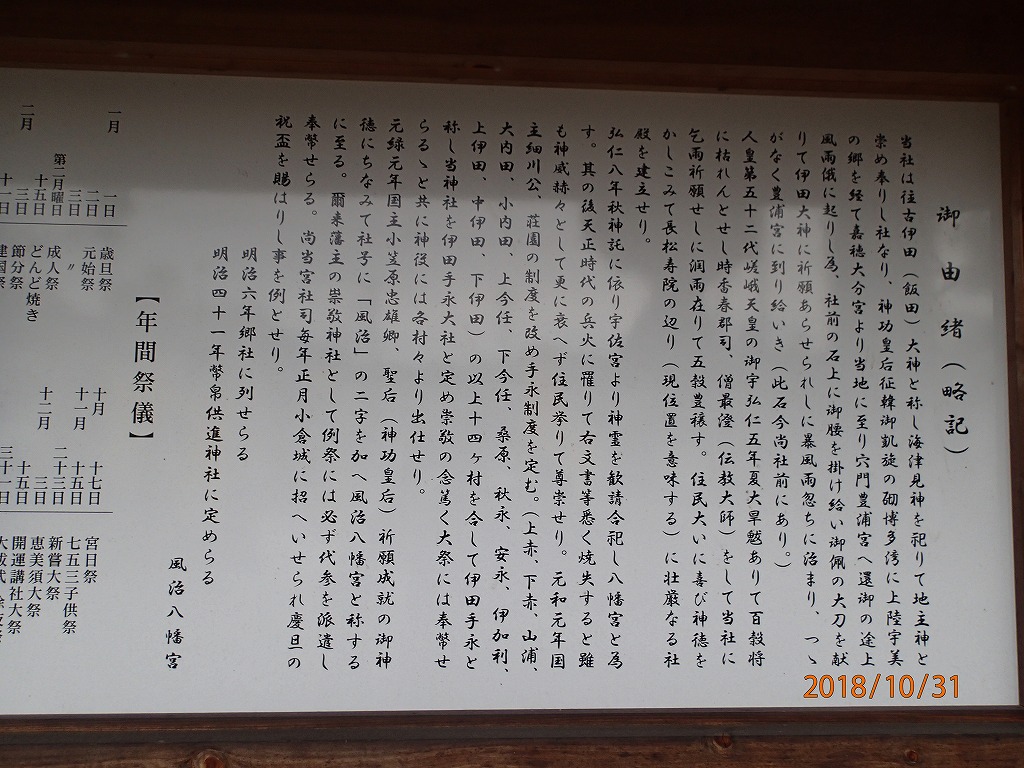 御由緒(略記)
当社は往古伊田(飯田)大神と称し海津見神を祀りて地主神と
崇め奉りし社なり、神功皇后征韓御凱旋の砌博多湾に上陸宇美
の郷を経て嘉穂大分宮より当地に至り穴門豊浦宮へ還御の途上
風雨俄に起りし為、社前の石上に御腰を掛け給い御佩の大刀を献
りて伊田大神に祈願あらせられしに暴風雨忽ちに治まり、つゝ
がなく豊浦宮に到り給いき(此石今尚社前にあり。)
人皇第五十二代嵯峨天皇の御宇弘仁五年夏大旱魃ありて百穀将
に枯れんとせし時香春郡司、僧最澄(伝教大師)をして当社に
乞雨祈願せしに潤雨在りて五穀豊穣す。住民大いに喜び神徳を
かしこみて長松寿院の辺り(現位置を意味する)に壮厳なる社
殿を建立せり。
弘仁八年秋神託に依り宇佐宮より神霊を歓請合祀し八幡宮と為
す。其の後天正時代の兵火に罹りて右文書等悉く焼失すると雖
も神威赫々として更に衰へず住民挙りて尊崇せり。元和元年国
主細川公、荘園の制度を改め手永制度を定む。(上赤、下赤、山浦、
大内田、小内田、上今任、下今任、桑原、秋永、安永、伊加利、
上伊田、中伊田、下伊田)の以上十四ヶ村を合して伊田手永と
称し当神社を伊田手永大社と定め崇敬の念篤く大祭には奉幣せ
らるゝと共に神役には各村々より出仕せり。
元緑元年国主小笠原忠雄卿、聖后(神功皇后)祈願成就の御神
徳にちなみて社号に「風治」の二字を加へ風治八幡宮と称する
に至る。爾来藩主の崇敬神社として例祭には必ず代参を派遣し
奉幣せらる。尚当宮社司毎年正月小倉城に招へいせられ慶旦の
祝盃を賜はりし事を例とせり。
明治六年郷社に列せらる
明治四十一年幣帛供進神社に定めらる
風治八幡宮
【年間祭儀】
一月 一日 歳旦祭
二日 元始祭
三日 〃
第二月曜日 成人祭
十五日 どんど焼き
二月 三日 節分祭
十一日 建国祭
十月 十七日 宮日祭
十一月 十五日 七五三子供祭
二十三日 新嘗大祭
十二月 三日 恵美須大祭
十五日 開運講社大祭
三十一日
2018/10/31